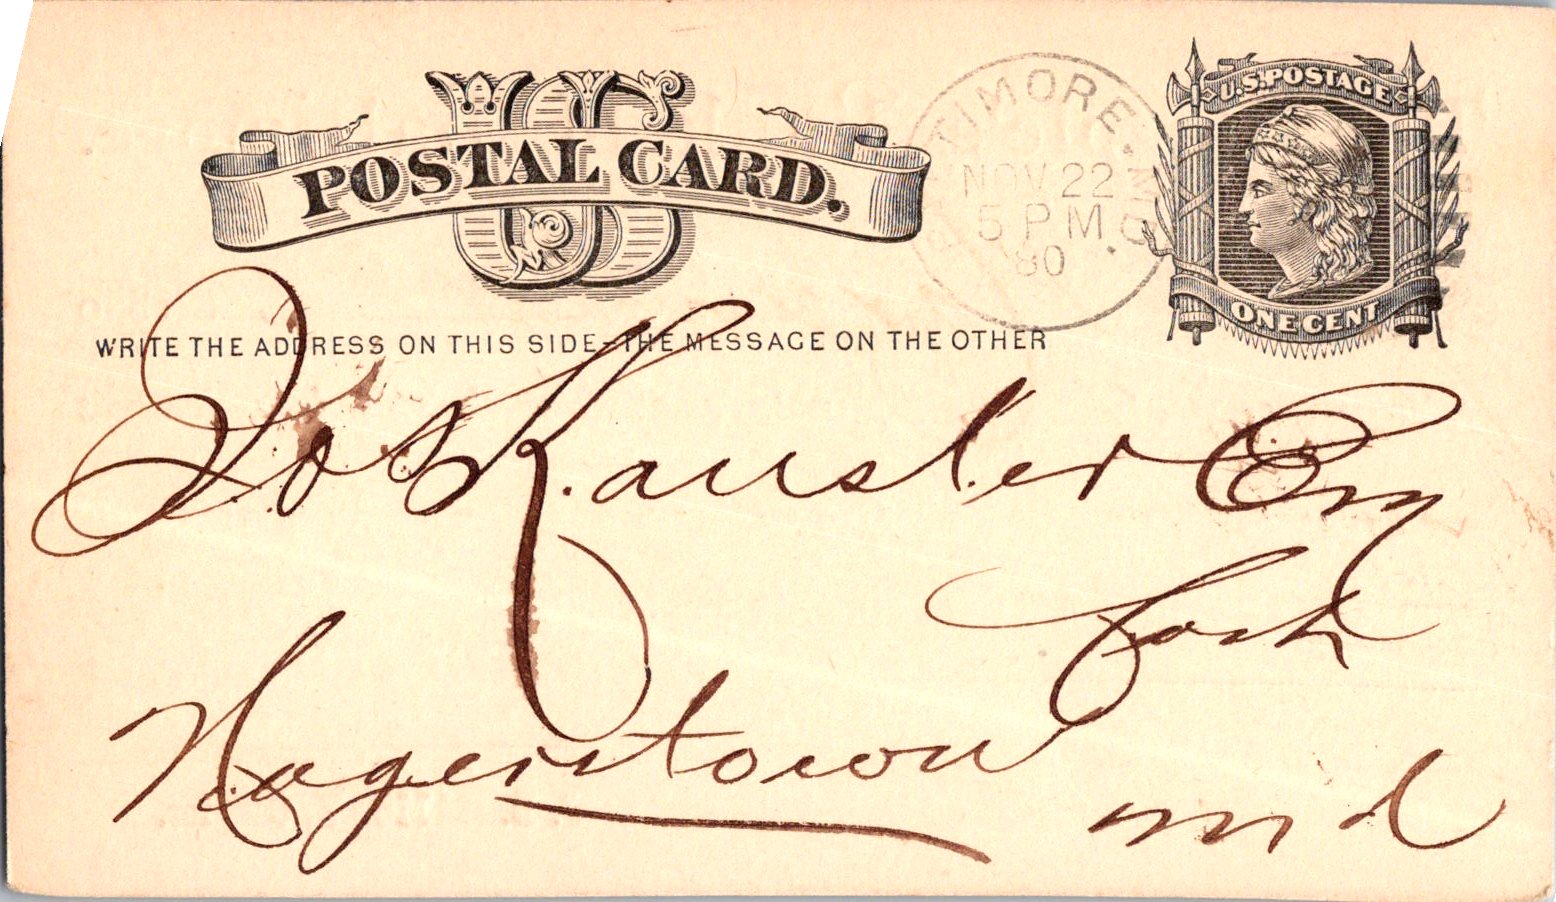 US
POSTAL CARD.
TIMORE. MD.
NOV 22
5 PM
80
U.S. POSTAGE
ONE CENT
WRITE THE ADDRESS ON THIS SIDE - THE MESSAGE ON THE OTHER
Jos Kausler Esq
Cash
Hagerstown
Md